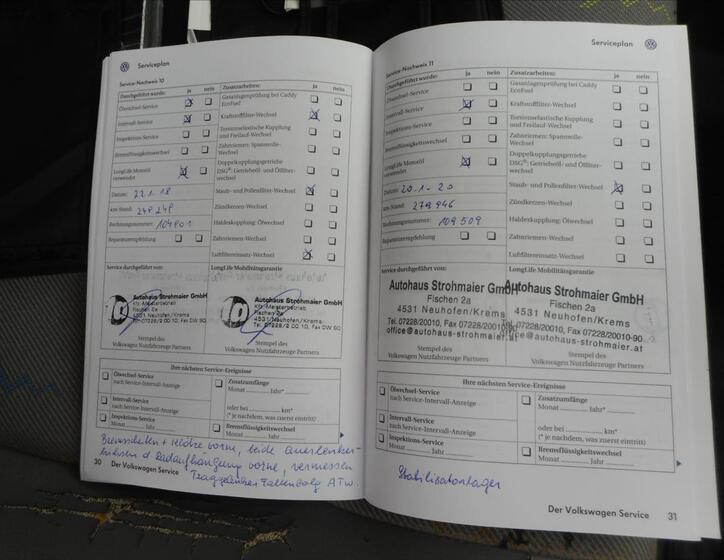 Serviceplan
Service-Nachweis 10
Durchgeführt wurde: ja nein
Ölwechsel-Service
Intervall-Service
Inspektions-Service
Bremsflüssigkeitswechsel
LongLife Motoröl
verwendet
Datum: 22.1.18
km-Stand: 248 248
Rechnungsnummer: 104801
Reparaturempfehlung
Zusatzarbeiten: ja nein
Gasanlagenprüfung bei Caddy
EcoFuel
Kraftstofffilter-Wechsel
Torsionselastische Kupplung
und Freilauf-Wechsel
Zahnriemen- Spannrolle-
Wechsel
Doppelkupplungsgetriebe
DSG®: Getriebeöl- und Ölfilter-
wechsel
Staub- und Pollenfilter-Wechsel
Zündkerzen-Wechsel
Haldexkupplung: Ölwechsel
Zahnriemen-Wechsel
Luftfiltereinsatz-Wechsel
Service durchgeführt von:
Autohaus Strohmaier GmbH
Kfz-Meisterbetrieb
Fischen 2a
4531 Neuhofen/Krems
Stempel des
Volkswagen Nutzfahrzeuge Partners
LongLife Mobilitätsgarantie
Autohaus Strohmaier GmbH
Kfz-Meisterbetrieb
Fischen 2a
4531 Neuhofen/Krems
Stempel des
Volkswagen Nutzfahrzeuge Partners
Ihre nächsten Service-Ereignisse
Ölwechsel-Service
nach Service-Intervall-Anzeige
Intervall-Service
nach Service-Intervall-Anzeige
Inspektions-Service
Monat Jahr
Zusatzumfänge
Monat Jahr*
oder bei km*
(* je nachdem, was zuerst eintritt)
Bremsflüssigkeitswechsel
Monat Jahr
Bremsscheiben + Klötze vorne, beide Querlenker-
vorne, vermessen
ATW.
30 Der Volkswagen Service
Serviceplan
Service-Nachweis 11
Durchgeführt wurde: ja nein
Ölwechsel-Service
Intervall-Service
Inspektions-Service
Bremsflüssigkeitswechsel
LongLife Motoröl
verwendet
Datum: 20.1-20
km-Stand: 279946
Rechnungsnummer: 109509
Reparaturempfehlung
Zusatzarbeiten: ja nein
Gasanlagenprüfung bei Caddy
EcoFuel
Kraftstofffilter-Wechsel
Torsionselastische Kupplung
und Freilauf-Wechsel
Zahnriemen- Spannrolle-
Wechsel
Doppelkupplungsgetriebe
DSG®: Getriebeöl- und Ölfilter-
wechsel
Staub- und Pollenfilter-Wechsel
Zündkerzen-Wechsel
Haldexkupplung: Ölwechsel
Zahnriemen-Wechsel
Luftfiltereinsatz-Wechsel
Service durchgeführt von:
Autohaus Strohmaier GmbH
Fischen 2a
4531 Neuhofen/Krems
Tel. 07228/20010, Fax 07228/20010-90
office@autohaus-strohmaier.at
Stempel des
Volkswagen Nutzfahrzeuge Partners
LongLife Mobilitätsgarantie
Autohaus Strohmaier GmbH
Fischen 2a
4531 Neuhofen/Krems
Tel. 07228/20010, Fax 07228/20010-90
office@autohaus-strohmaier.at
Stempel des
Volkswagen Nutzfahrzeuge Partners
Ihre nächsten Service-Ereignisse
Ölwechsel-Service
nach Service-Intervall-Anzeige
Intervall-Service
nach Service-Intervall-Anzeige
Inspektions-Service
Monat Jahr
Zusatzumfänge
Monat Jahr*
oder bei km*
(* je nachdem, was zuerst eintritt)
Bremsflüssigkeitswechsel
Monat Jahr
Stabilisatorlager
Der Volkswagen Service 31